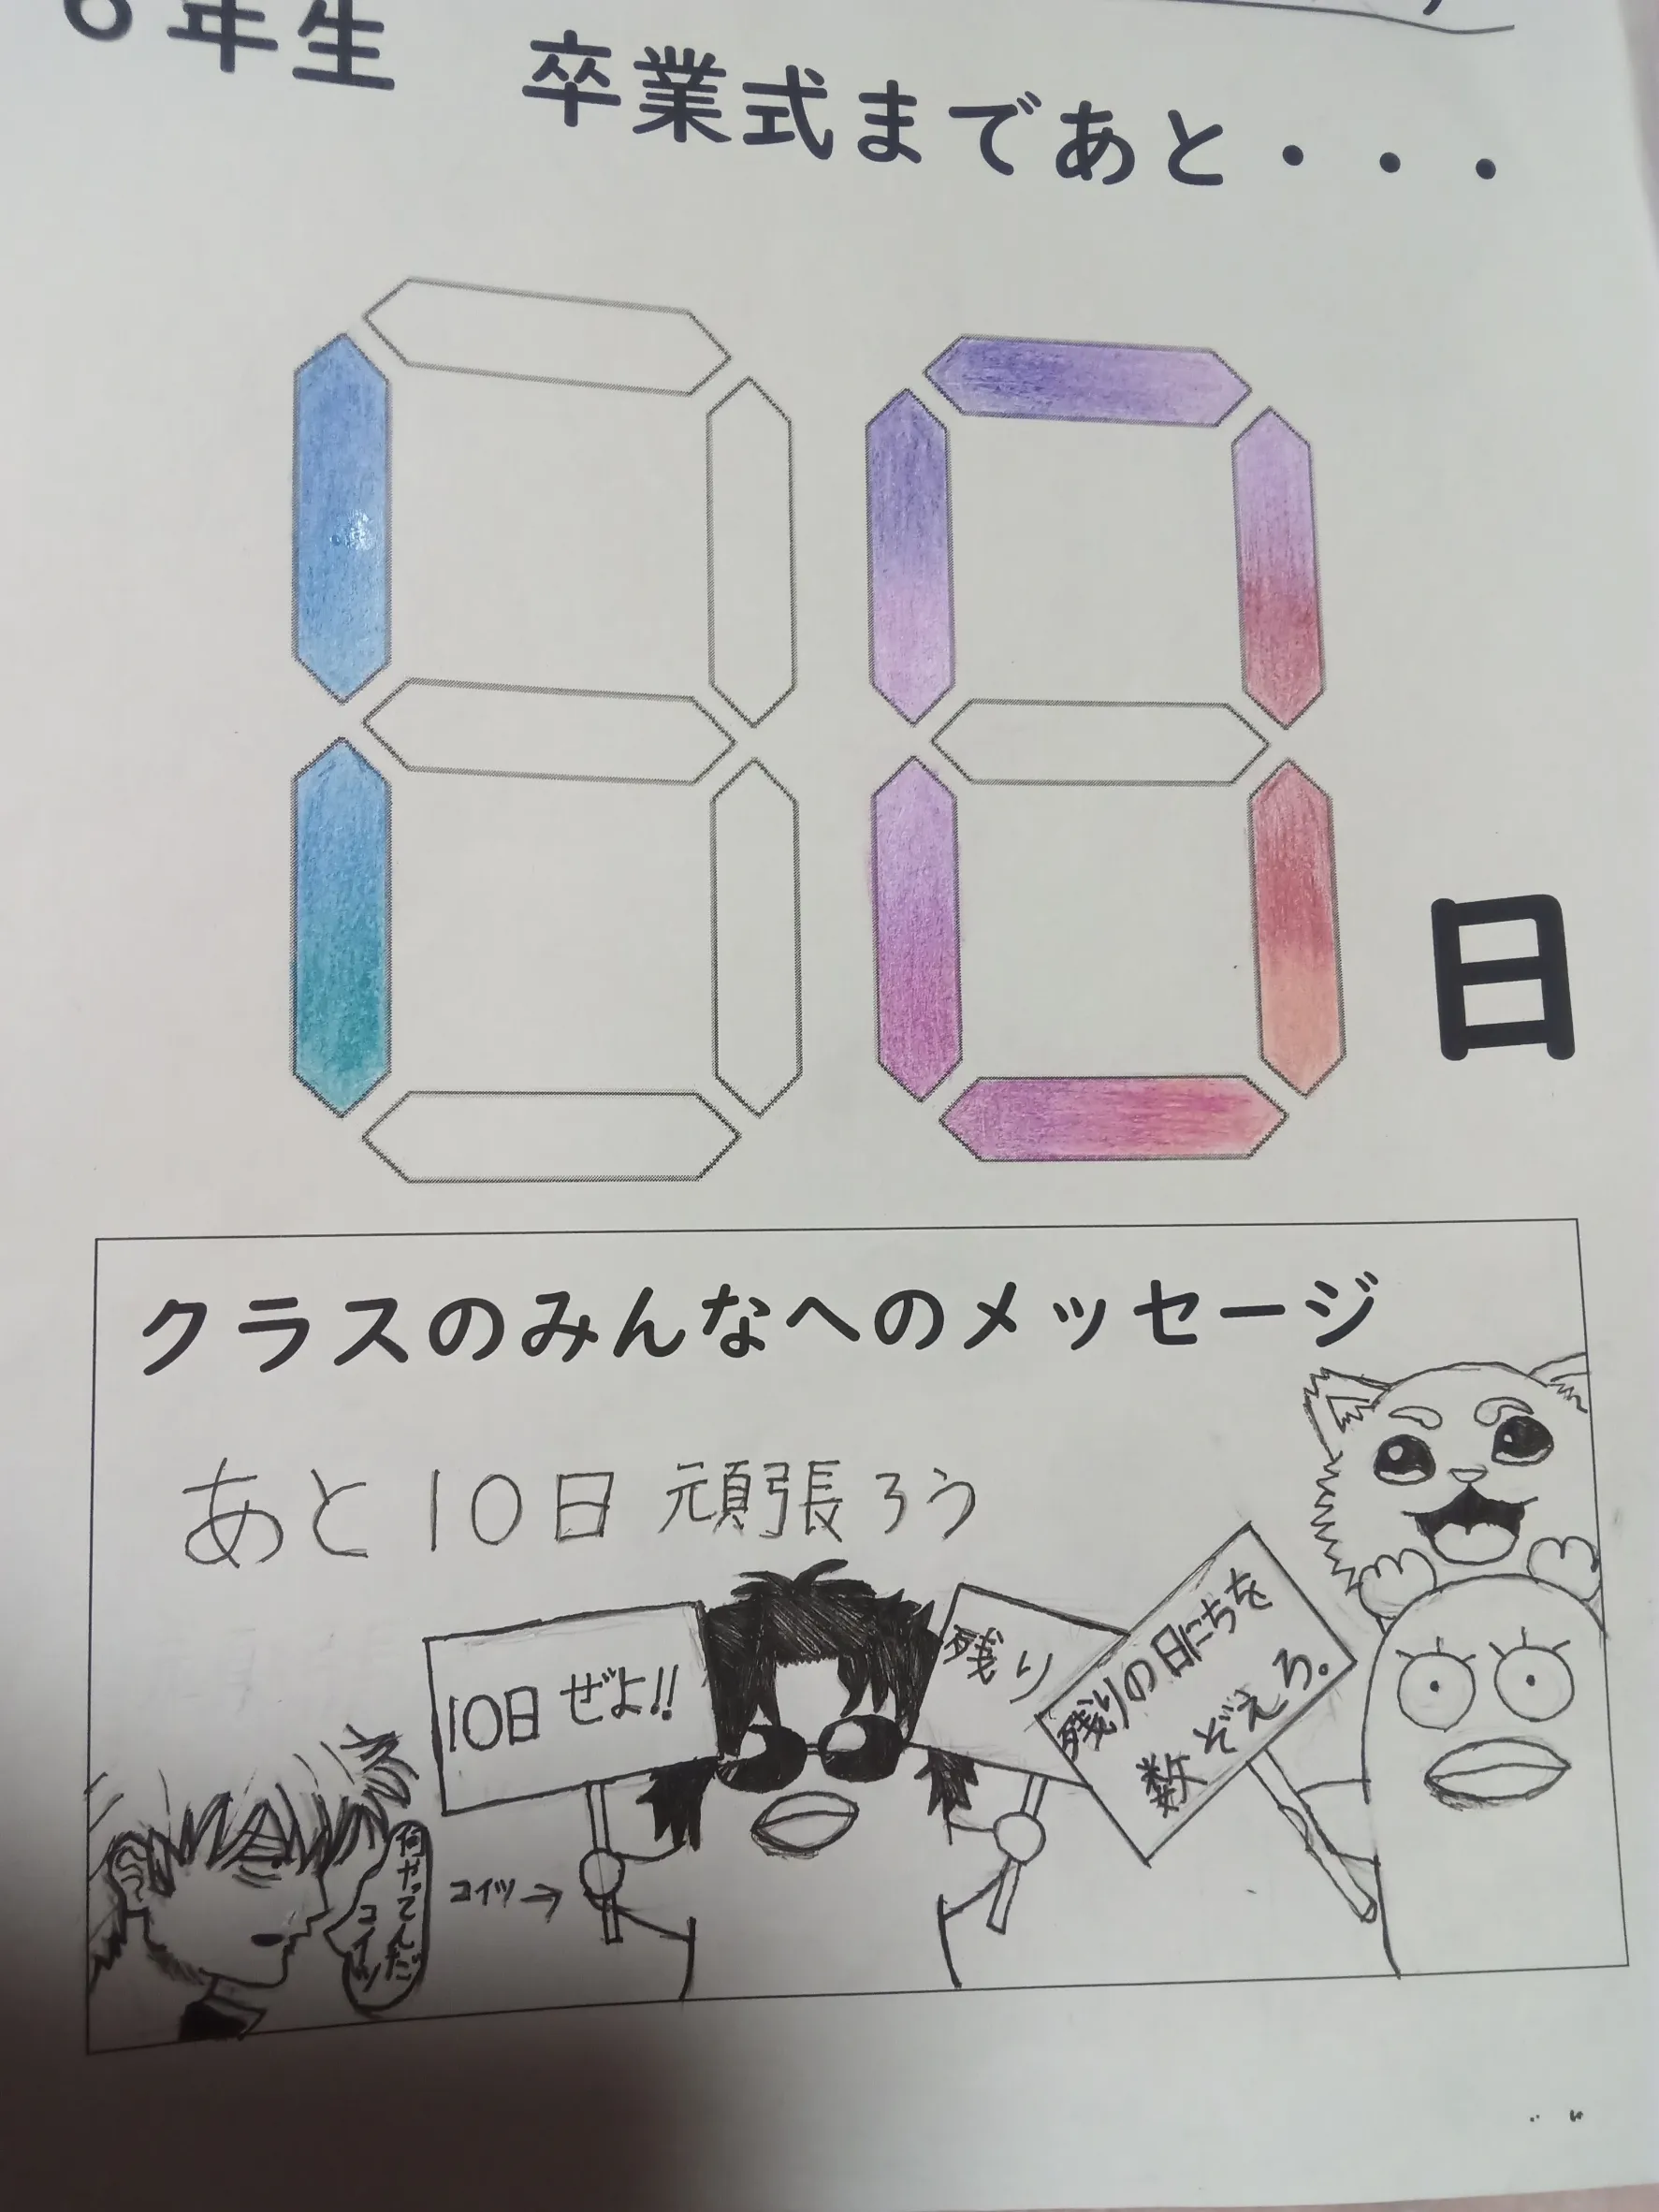 6年生　卒業式まであと・・・
10日
クラスのみんなへのメッセージ
あと10日 頑張ろう
10日 ぜよ!!
残り
残りの日にちを
数ぞえろ。
何やってんだ
コイツ
コイツ→